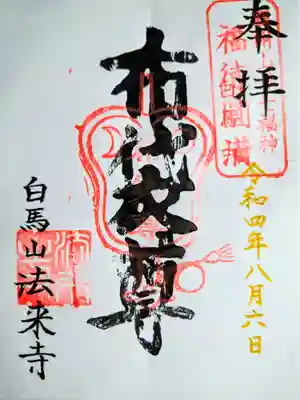 奉拝
福徳円満
七福神
令和四年八月六日
布袋尊
白馬山法来寺